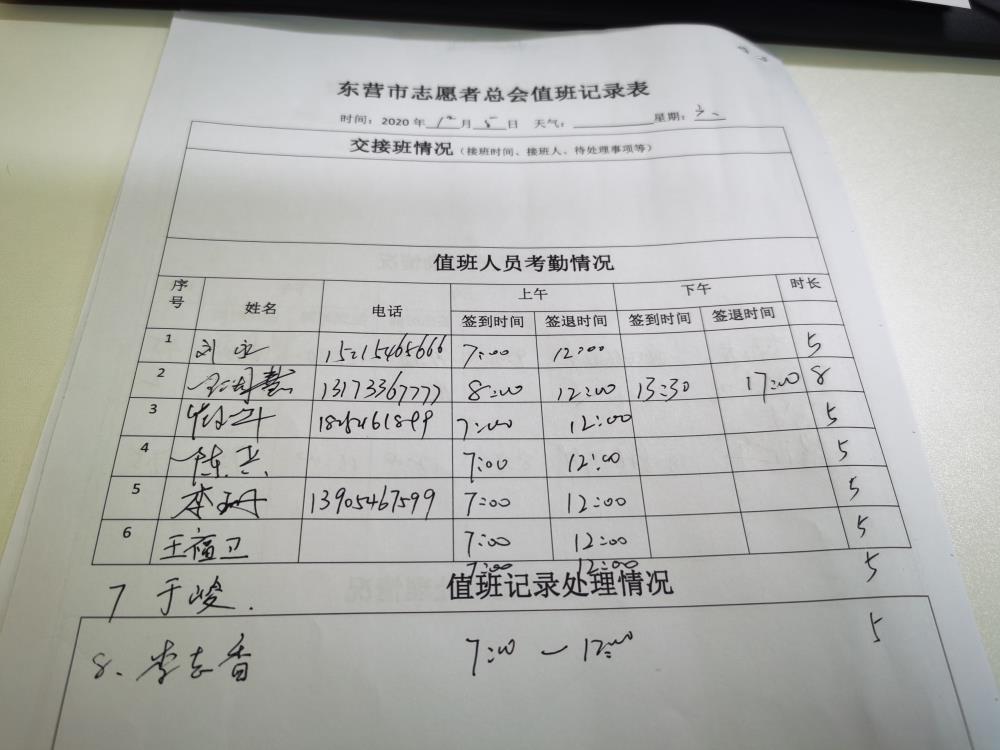 东营市志愿者总会值班记录表
时间：2020年12月5日 天气： 星期：六
交接班情况（接班时间、接班人、待处理事项等）
值班人员考勤情况
序号 姓名 电话 上午 下午 时长
签到时间 签退时间 签到时间 签退时间
1 刘 15215465666 7:00 12:00 5
2 慧 13173367777 8:00 12:00 13:30 17:00 8
3 7:00 12:00 5
4 陈 7:00 12:00 5
5 李珊 13905467599 7:00 12:00 5
6 王福卫 7:00 12:00 5
7 于峻. 7:00 12:00 5
值班记录处理情况
8、李志香 7:00 — 12:00 5